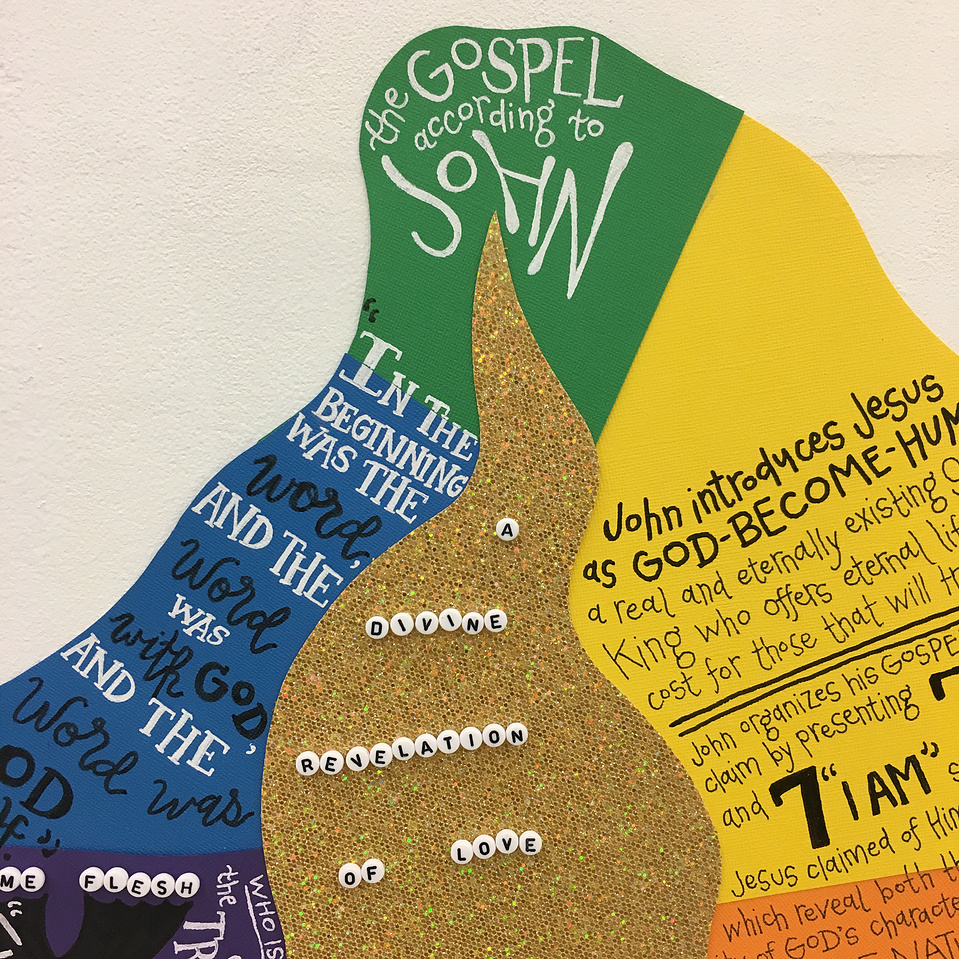 the GOSPEL
according to
JOHN
"IN THE
BEGINNING
WAS THE
Word,
AND THE
Word
WAS
with GOD,
AND THE
Word was
A
DIVINE
REVELATION
OF LOVE
FLESH
the
WHO IS
John introduces Jesus
as GOD-BECOME-
a real and eternally existing
King who offers eternal
cost for those that will
John organizes his GOSPEL
claim by presenting 7
and 7 "I AM"
Jesus claimed of Him
which reveal both
of GOD'S